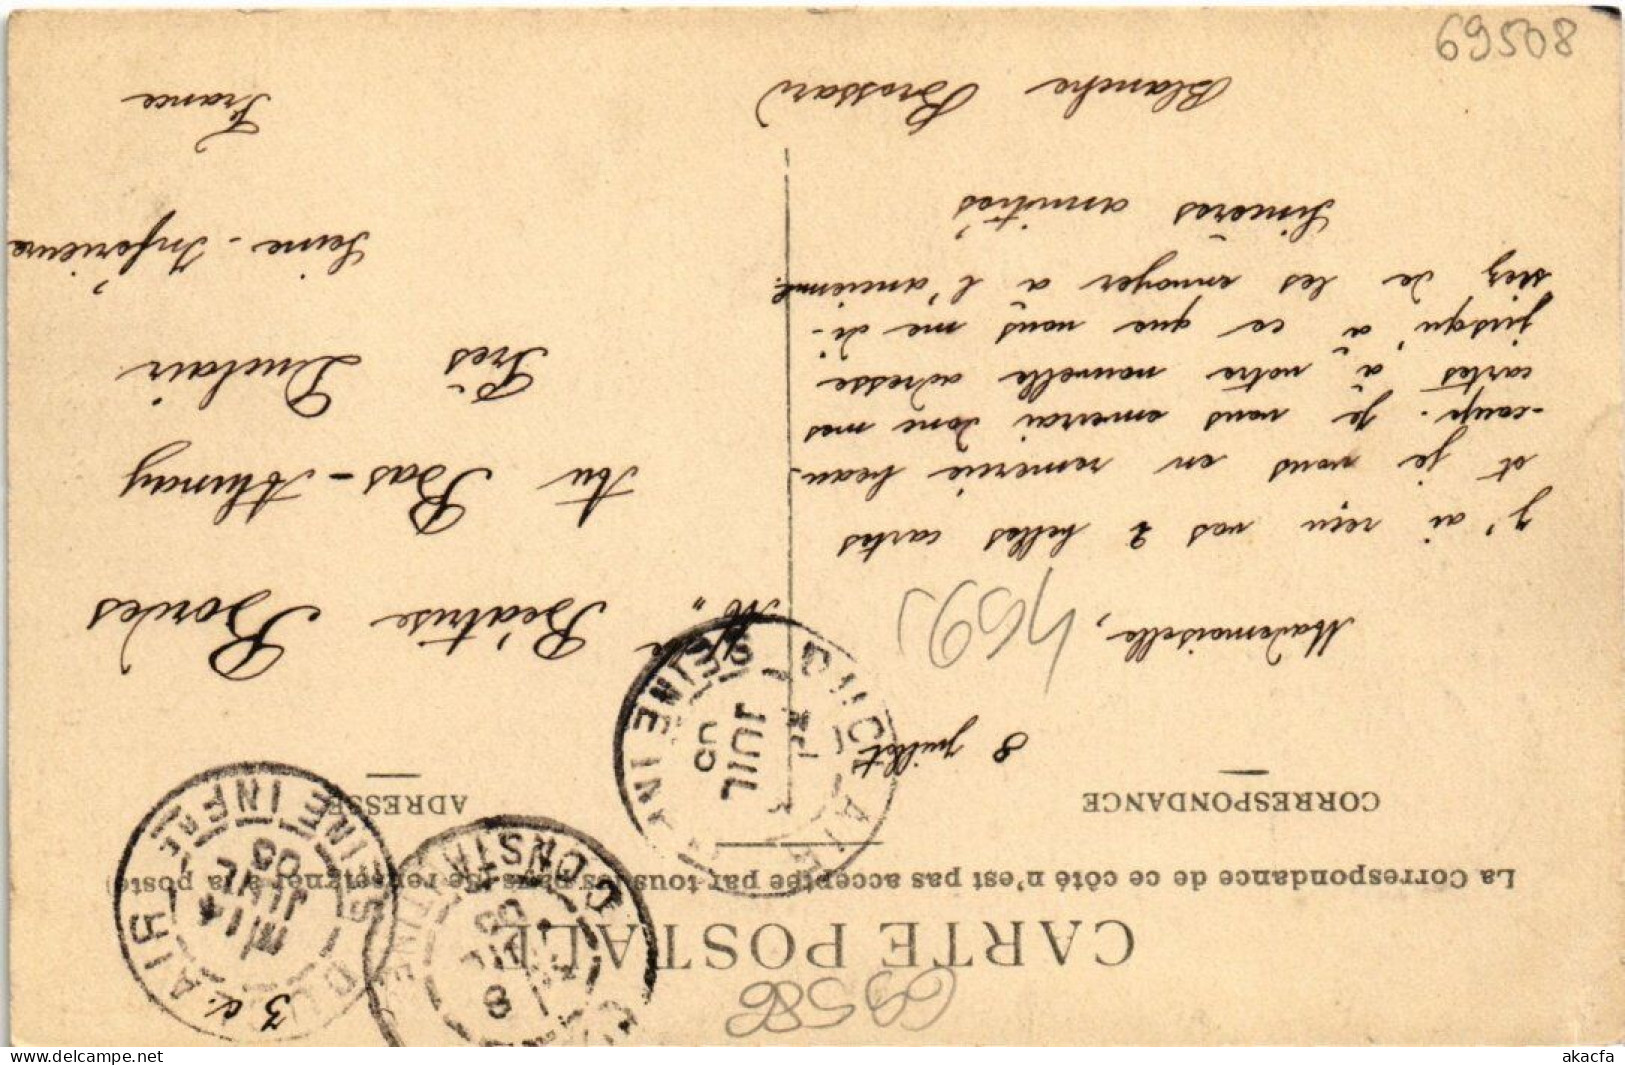 69508
69586
CARTE POSTALE
La Correspondance de ce côté n'est pas acceptée par tous les pays (Se renseigner à la poste)
CORRESPONDANCE
ADRESSE
8 Juillet
Mademoiselle,
J'ai reçu vos 2 belles cartes
et je vous en remercie beau-
-coup. Je vous enverrai donc mes
cartes à votre nouvelle adresse
jusqu'à ce que vous me di-
siez de les envoyer à l'ancienne.
Sincères amitiés
Blanche Brossard
Melle Béatrise Bordes
Au Bas-Aulnay
Près Duclair
Seine-Inférieure
France
3 d.
DUCLAIR
SEINE INFRE
14
JUIL
05
CONSTANTINE
8
05
DUCLAIR
SEINE INFRE
JUIL
05
akacfa